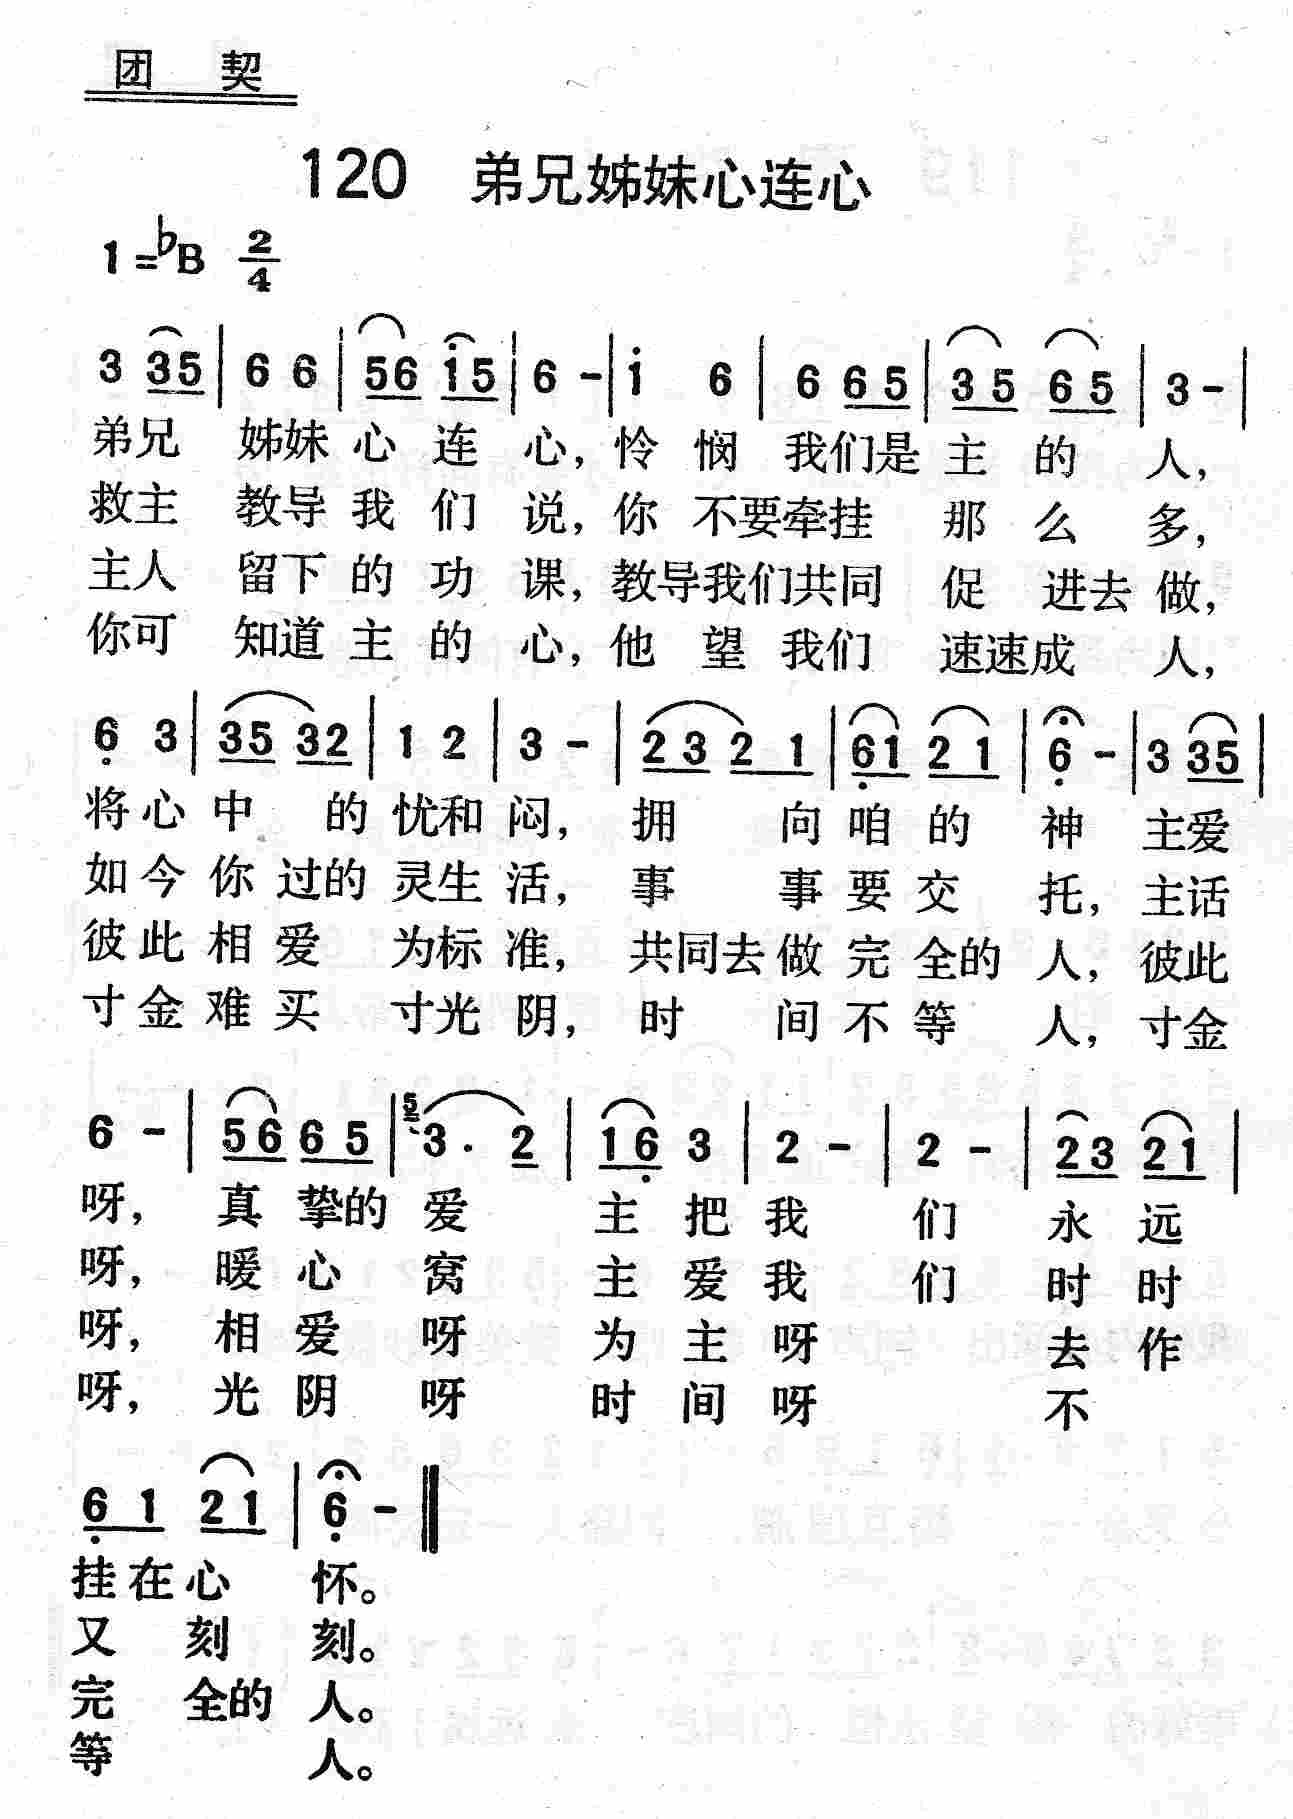 团 契
120 弟兄姊妹心连心
1=♭B 2/4
3 35 | 6 6 | 56 i5 | 6 - | i 6 | 6 65 | 35 65 | 3 - |
弟兄 姊妹 心 连 心，怜 悯 我们是 主 的 人，
救主 教导 我 们 说，你 不要牵挂 那 么 多，
主人 留下 的 功 课，教导我们共同 促 进去 做，
你可 知道 主 的 心，他 望 我们 速速成 人，
6̣ 3 | 35 32 | 1 2 | 3 - | 23 21 | 6̣1 21 | 6̣ - | 3 35 |
将心 中 的 忧和 闷，拥 向 咱 的 神 主爱
如今 你 过的 灵生 活，事 事 要 交 托，主话
彼此 相 爱 为标 准，共同去做 完 全的 人，彼此
寸金 难 买 寸光 阴，时 间 不 等 人，寸金
6 - | 56 65 | 5 3· 2 | 16̣ 3 | 2 - | 2 - | 23 21 |
呀，真 挚的 爱 主 把 我 们 永 远
呀，暖 心 窝 主 爱 我 们 时 时
呀，相 爱 呀 为 主 呀 去 作
呀，光 阴 呀 时 间 呀 不
6̣1 21 | 6̣ - ‖
挂在心 怀。
又 刻 刻。
完 全的 人。
等 人。